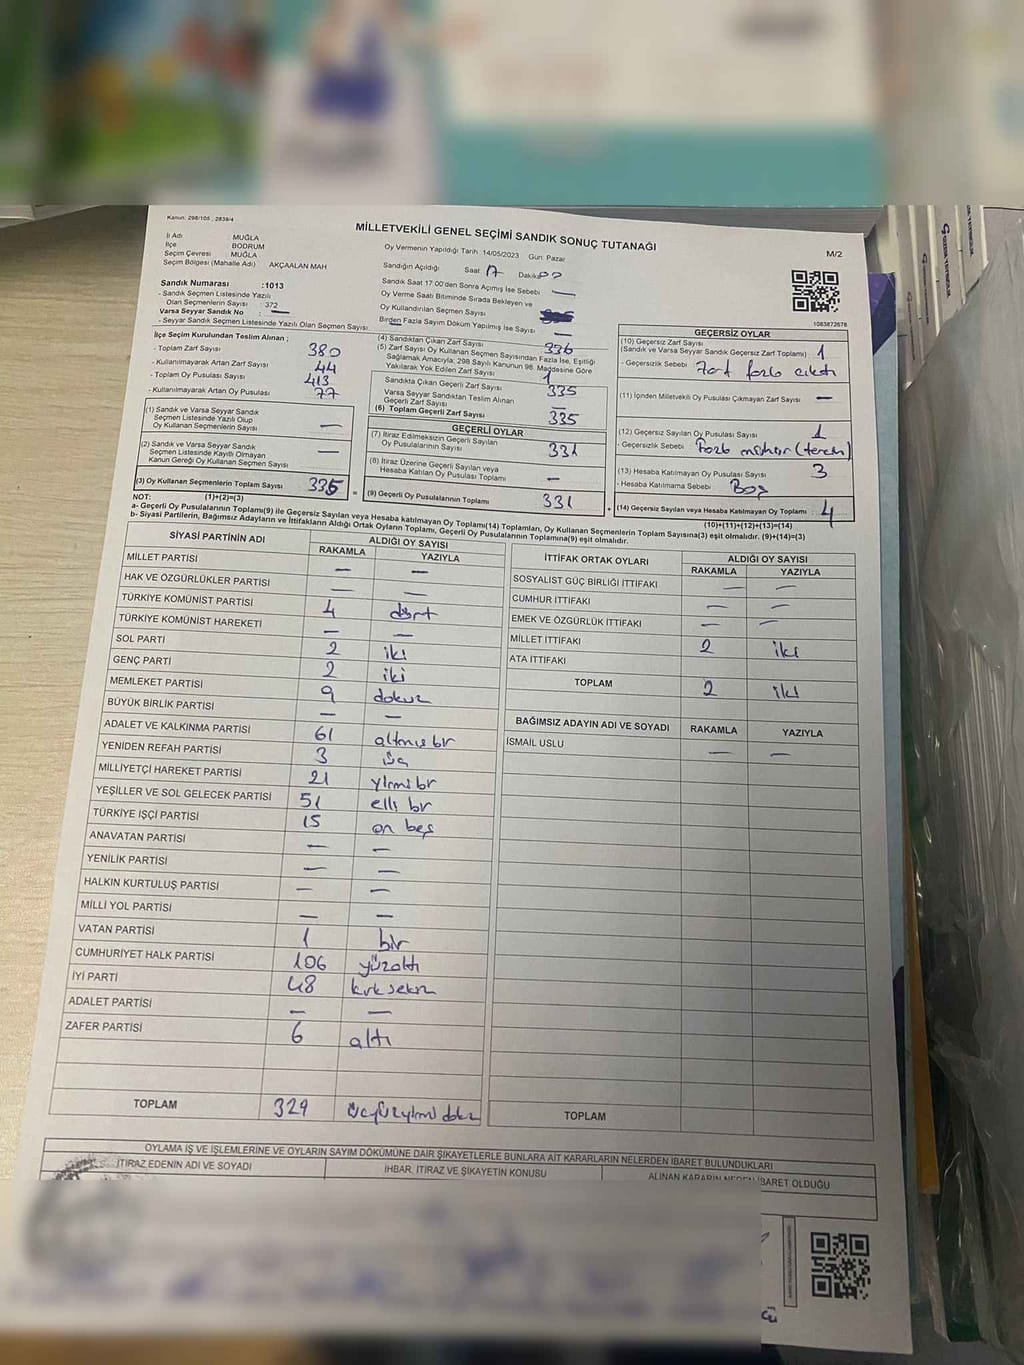 Kanun: 298/105 , 2839/4
MİLLETVEKİLİ GENEL SEÇİMİ SANDIK SONUÇ TUTANAĞI
M/2
İli Adı MUĞLA
İlçe BODRUM
Seçim Çevresi MUĞLA
Seçim Bölgesi (Mahalle Adı) AKÇAALAN MAH
Sandık Numarası :1013
- Sandık Seçmen Listesinde Yazılı
Olan Seçmenlerin Sayısı : 372
Varsa Seyyar Sandık No —
- Seyyar Sandık Seçmen Listesinde Yazılı Olan Seçmen Sayısı
Oy Vermenin Yapıldığı Tarih :14/05/2023 Gün: Pazar
Sandığın Açıldığı Saat 17 Dakika
Sandık Saat 17:00'den Sonra Açılmış İse Sebebi —
Oy Verme Saati Bitiminde Sırada Bekleyen ve
Oy Kullandırılan Seçmen Sayısı
Birden Fazla Sayım Döküm Yapılmış İse Sayısı —
1083872678
İlçe Seçim Kurulundan Teslim Alınan ;
- Toplam Zarf Sayısı 380
- Kullanılmayarak Artan Zarf Sayısı 44
- Toplam Oy Pusulası Sayısı 413
- Kullanılmayarak Artan Oy Pusulası 77
(1) Sandık ve Varsa Seyyar Sandık
Seçmen Listesinde Yazılı Olup
Oy Kullanan Seçmenlerin Sayısı —
(2) Sandık ve Varsa Seyyar Sandık
Seçmen Listesinde Kayıtlı Olmayan
Kanun Gereği Oy Kullanan Seçmen Sayısı —
(3) Oy Kullanan Seçmenlerin Toplam Sayısı 335
(1)+(2)=(3)
(4) Sandıktan Çıkan Zarf Sayısı 336
(5) Zarf Sayısı Oy Kullanan Seçmen Sayısından Fazla İse, Eşitliği
Sağlamak Amacıyla, 298 Sayılı Kanunun 98. Maddesine Göre
Yakılarak Yok Edilen Zarf Sayısı 1
Sandıkta Çıkan Geçerli Zarf Sayısı 335
Varsa Seyyar Sandıktan Teslim Alınan
Geçerli Zarf Sayısı —
(6) Toplam Geçerli Zarf Sayısı 335
GEÇERLİ OYLAR
(7) İtiraz Edilmeksizin Geçerli Sayılan
Oy Pusulalarının Sayısı 331
(8) İtiraz Üzerine Geçerli Sayılan veya
Hesaba Katılan Oy Pusulası Toplamı —
= (9) Geçerli Oy Pusulalarının Toplamı 331
GEÇERSİZ OYLAR
(10) Geçersiz Zarf Sayısı
(Sandık ve Varsa Seyyar Sandık Geçersiz Zarf Toplamı) 1
- Geçersizlik Sebebi Zarf fazla çıktı
(11) İçinden Milletvekili Oy Pusulası Çıkmayan Zarf Sayısı —
(12) Geçersiz Sayılan Oy Pusulası Sayısı 1
- Geçersizlik Sebebi Fazla mühür (tercih)
(13) Hesaba Katılmayan Oy Pusulası Sayısı 3
- Hesaba Katılmama Sebebi Boş
+ (14) Geçersiz Sayılan veya Hesaba Katılmayan Oy Toplamı 4
(10)+(11)+(12)+(13)=(14)
NOT:
a- Geçerli Oy Pusulalarının Toplamı(9) ile Geçersiz Sayılan veya Hesaba katılmayan Oy Toplamı(14) Toplamları, Oy Kullanan Seçmenlerin Toplam Sayısına(3) eşit olmalıdır. (9)+(14)=(3)
b- Siyasi Partilerin, Bağımsız Adayların ve İttifakların Aldığı Ortak Oyların Toplamı, Geçerli Oy Pusulalarının Toplamına(9) eşit olmalıdır.
SİYASİ PARTİNİN ADI ALDIĞI OY SAYISI
RAKAMLA YAZIYLA
MİLLET PARTİSİ — —
HAK VE ÖZGÜRLÜKLER PARTİSİ — —
TÜRKİYE KOMÜNİST PARTİSİ 4 dört
TÜRKİYE KOMÜNİST HAREKETİ — —
SOL PARTİ 2 iki
GENÇ PARTİ 2 iki
MEMLEKET PARTİSİ 9 dokuz
BÜYÜK BİRLİK PARTİSİ — —
ADALET VE KALKINMA PARTİSİ 61 altmış bir
YENİDEN REFAH PARTİSİ 3 üç
MİLLİYETÇİ HAREKET PARTİSİ 21 yirmi bir
YEŞİLLER VE SOL GELECEK PARTİSİ 51 elli bir
TÜRKİYE İŞÇİ PARTİSİ 15 on beş
ANAVATAN PARTİSİ — —
YENİLİK PARTİSİ — —
HALKIN KURTULUŞ PARTİSİ — —
MİLLİ YOL PARTİSİ — —
VATAN PARTİSİ 1 bir
CUMHURİYET HALK PARTİSİ 106 yüzaltı
İYİ PARTİ 48 kırk sekiz
ADALET PARTİSİ — —
ZAFER PARTİSİ 6 altı
TOPLAM 329 üçyüzyirmi dokuz
İTTİFAK ORTAK OYLARI ALDIĞI OY SAYISI
RAKAMLA YAZIYLA
SOSYALİST GÜÇ BİRLİĞİ İTTİFAKI — —
CUMHUR İTTİFAKI — —
EMEK VE ÖZGÜRLÜK İTTİFAKI — —
MİLLET İTTİFAKI 2 iki
ATA İTTİFAKI
TOPLAM 2 iki
BAĞIMSIZ ADAYIN ADI VE SOYADI RAKAMLA YAZIYLA
İSMAİL USLU — —
TOPLAM
OYLAMA İŞ VE İŞLEMLERİNE VE OYLARIN SAYIM DÖKÜMÜNE DAİR ŞİKAYETLERLE BUNLARA AİT KARARLARIN NELERDEN İBARET BULUNDUKLARI
İTİRAZ EDENİN ADI VE SOYADI
İHBAR, İTİRAZ VE ŞİKAYETİN KONUSU
ALINAN KARARIN NEDEN İBARET OLDUĞU